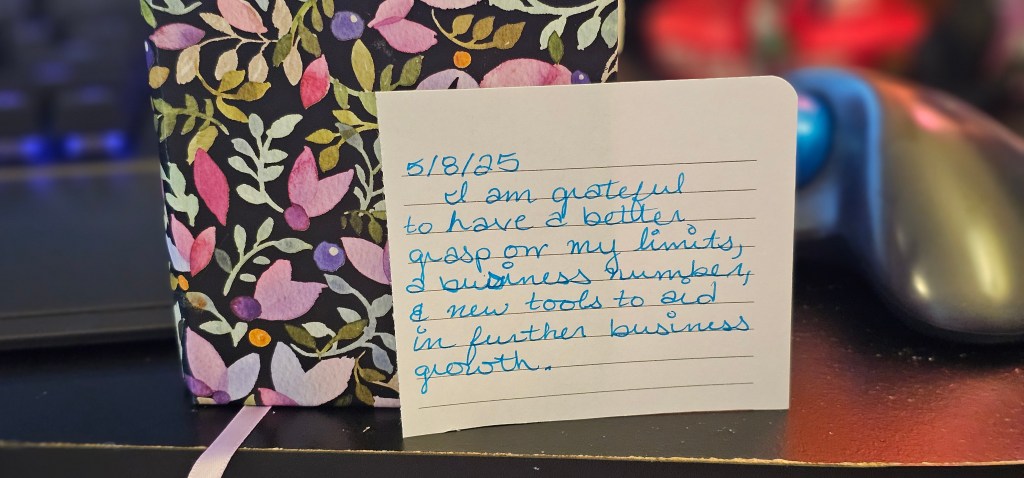 5/8/25
I am grateful
to have a better
grasp on my limits,
a business number,
& new tools to aid
in further business
growth.